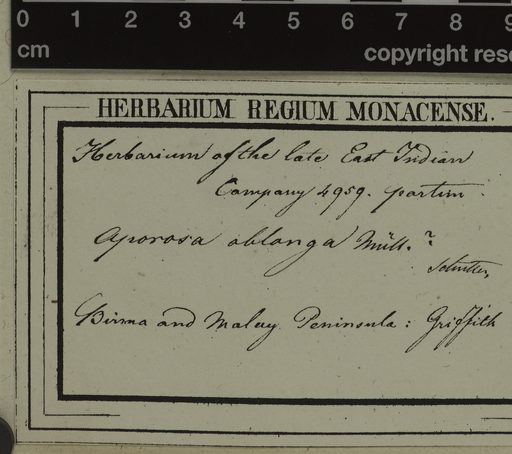 0 1 2 3 4 5 6 7 8 9
cm copyright rese
HERBARIUM REGIUM MONACENSE.
Herbarium of the late East Indian
Company 4959. partim.
Aporosa oblonga Müll.
Birma and Malay Peninsula: Griffith